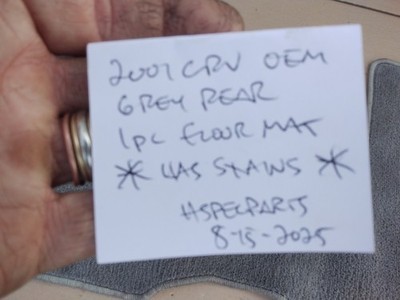 2007 CRV OEM
GREY REAR
1PC FLOOR MAT
* HAS STAINS *
HSPECPARTS
8-15-2025